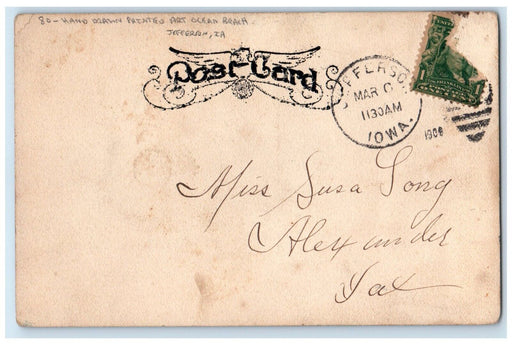 80 - HAND DRAWN PAINTED ART OCEAN BEACH
JEFFERSON, IA
Post-Card
JEFFERSON
MAR 6
1130AM
IOWA.
1906
1
Miss Susa Long
Alexander